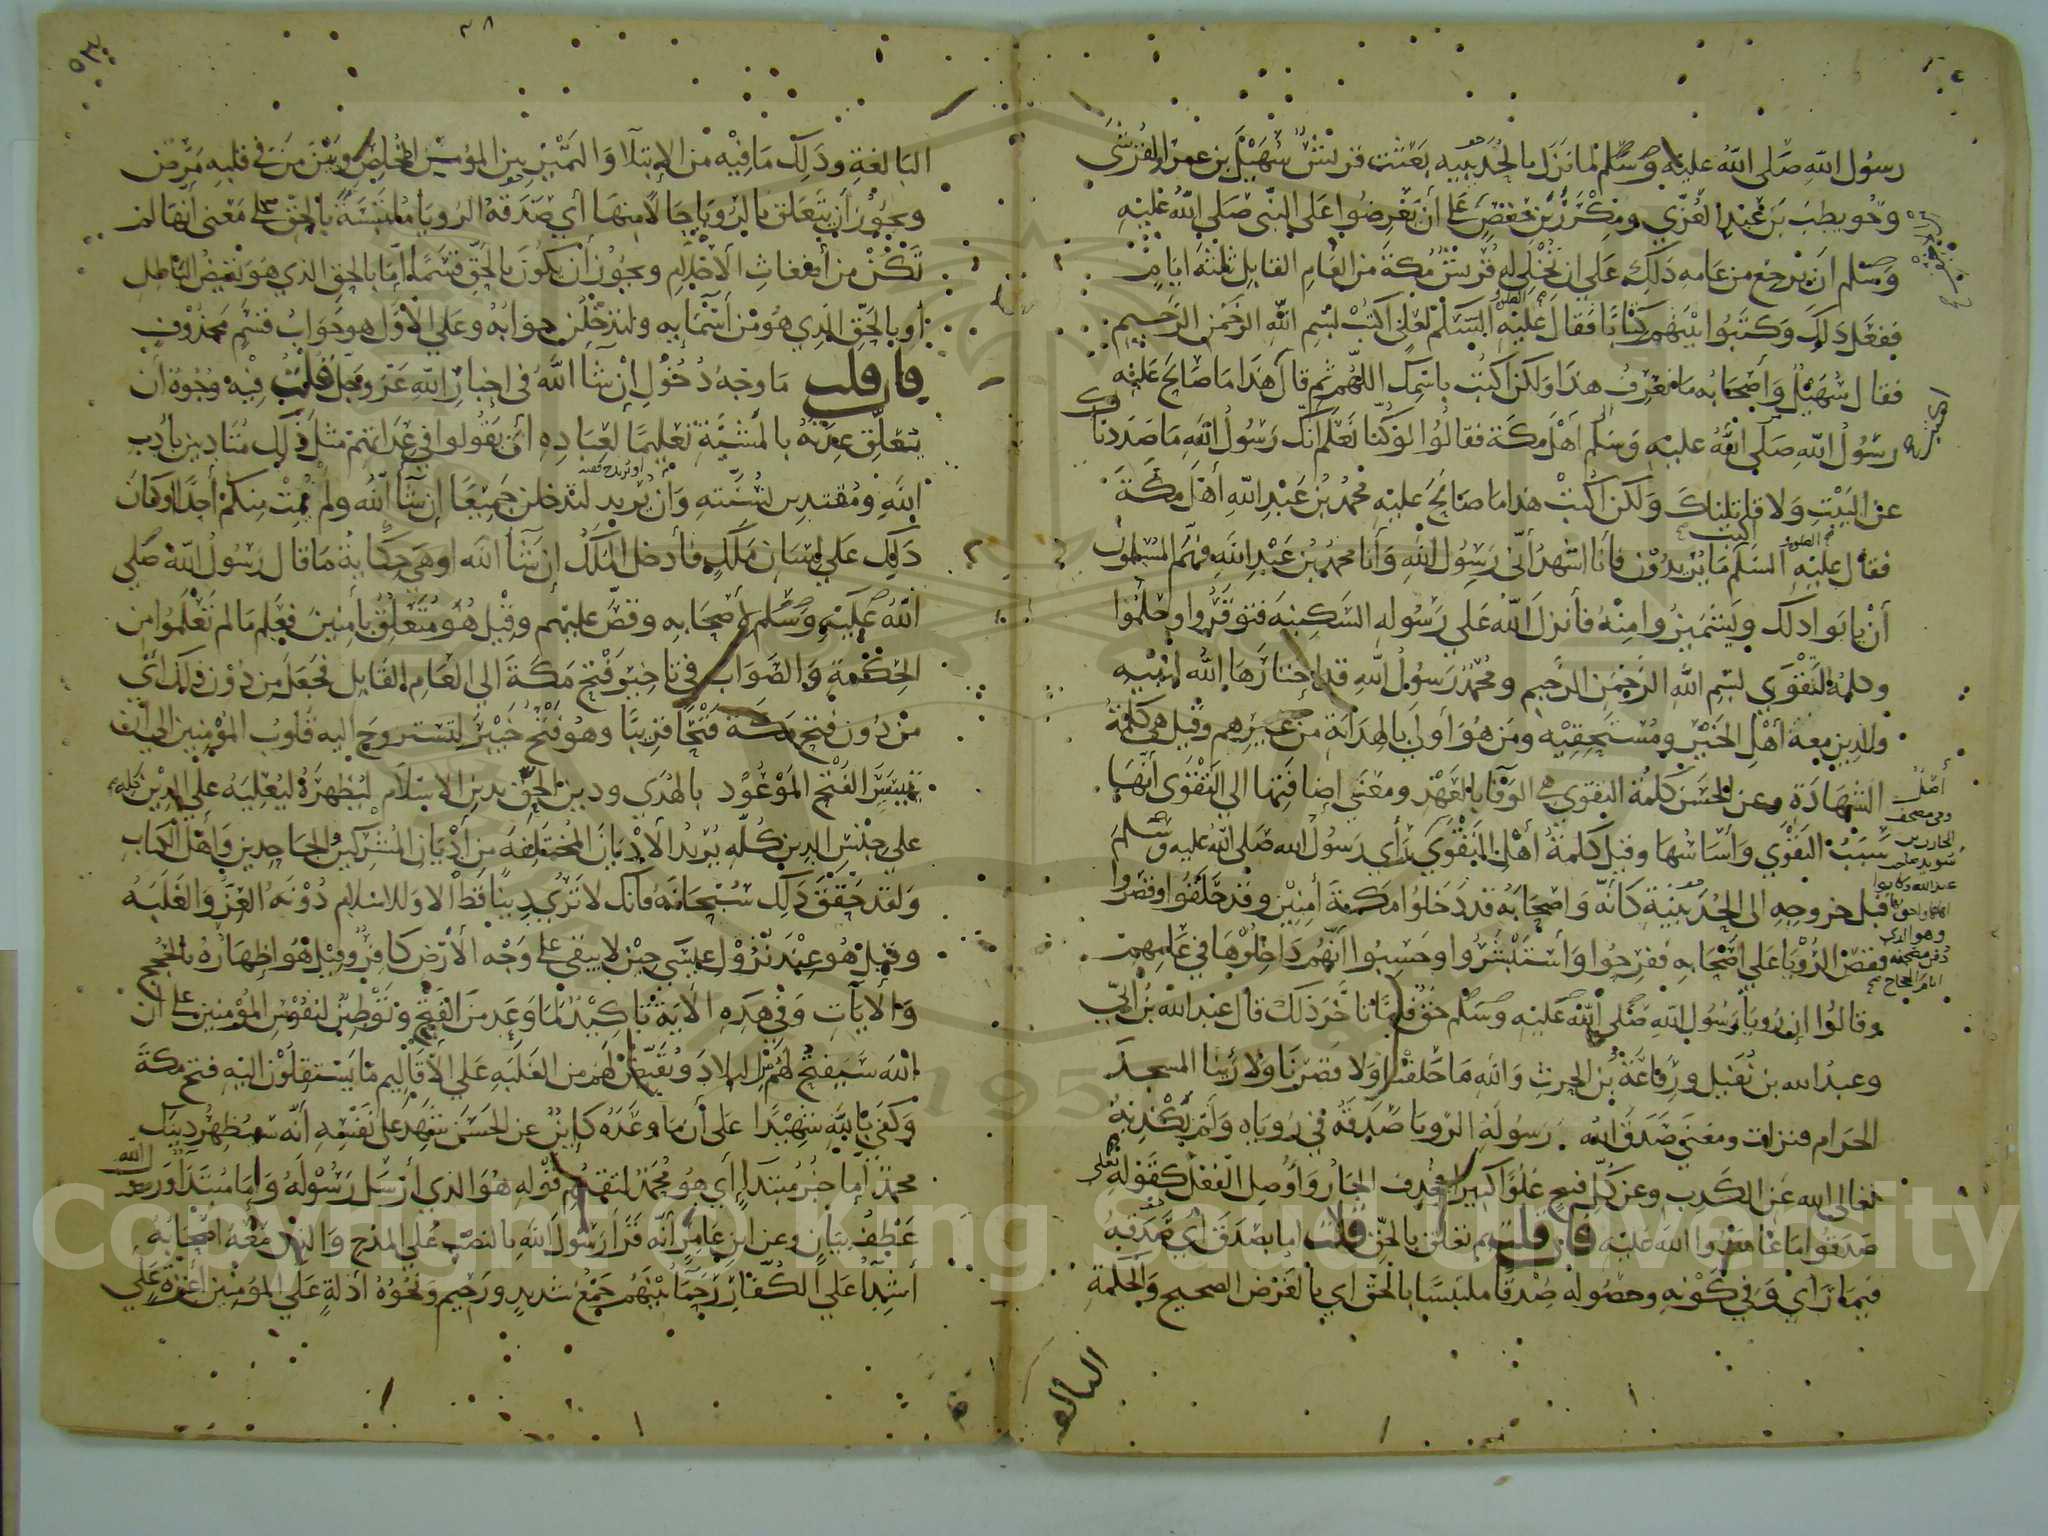 رسول الله صلى الله عليه وسلم لما نزل بالحديبيه بعثت قريش سهيل بن عمرو القرشي
وحويطب بن عبد العزي ومكرز بن حفص على أن يعرضوا على النبي صلى الله عليه
وسلم أن يرجع من عامه ذلك علي ان تخلي له قريش مكة من العام القابل ثلثة ايام
ففعل ذلك وكتبوا بينهم كتابا فقال عليه السلم لعلي اكتب بسم الله الرحمن الرحيم
فقال سهيل وأصحابه ما نعرف هذا ولكن اكتب باسمك اللهم ثم قال هذا ما صالح عليه
رسول الله صلى الله عليه وسلم أهل مكة فقالوا لو كنا نعلم انك رسول الله ما صددناك
عن البيت ولا قاتلناك ولكن اكتب هذا ما صالح عليه محمد بن عبد الله أهل مكة
فقال عليه السلم اكتب ما يريدون فأنا اشهد أني رسول الله وأنا محمد بن عبد الله فهم المسلمون
أن يابوا ذلك ويشمئزوا منه فأنزل الله علي رسوله السكينه فتوقروا وحلموا
وكلمة التقوي بسم الله الرحمن الرحيم ومحمد رسول الله قد اختارها الله لنبيه
والذين معه أهل الخير ومستحقيه ومن هو أولي بالهداية من غيرهم وقيل هي كلمة
الشهادة وعن الحسن كلمة التقوي هي الوفا بالعهد ومعني إضافتها الي التقوي أنها
سبب التقوي وأساسها وقيل كلمة أهل التقوي رأي رسول الله صلى الله عليه وسلم
قبل خروجه الى الحديبية كأنه وأصحابه قد دخلوا مكة أمنين وقد حلقوا وقصروا
فقص الرويا علي اصحابه ففرحوا واستبشروا وحسبوا أنهم داخلوها في عامهم
وقالوا ان رويا رسول الله صلى الله عليه وسلم حق فلما تأخر ذلك قال عبد الله بن أبي
وعبد الله بن نفيل ورفاعة بن الحرث والله ما حلقنا ولا قصرنا ولا رأينا المسجد
الحرام فنزلت ومعني صدق الله رسوله الرويا صدقه في روياه ولم يكذبه
تعالى الله عن الكذب وعن كل قبيح علوا كبيرا فحذف الجار وأوصل الفعل كقوله تعلى
صدقوا ما عاهدوا الله عليه فان قلت بم تعلق بالحق قلت اما بصدق أي صدقه
فيما رأي وفي كونه وحصوله صدقا ملتبسا بالحق اي بالغرض الصحيح والحكمة
البالغه
أهل
وفي مصحف
الحارث بن
سويد صاحب
عبد الله وكانوا
اهلها واحق بها
وهو الذي
دفن مصحفه
ايام الحجاج
البالغة وذلك ما فيه من الإبتلا والتمييز بين المؤمن المخلص وبين من في قلبه مرض
ويجوز أن يتعلق بالرويا حالا منها أي صدقه الرويا ملتبسة بالحق على معني أنها لم
تكن من أضغاث الأحلام ويجوز أن يكون بالحق قسما إما بالحق الذي هو نقيض الباطل
أو بالحق الذي هو من أسمايه ولتدخلن جوابه وعلي الأول هو جواب قسم محذوف
فان قلت ما وجه دخول إن شآ الله في اخبار الله عز وجل قلت فيه وجوه أن
يتعلق عدته بالمشية تعليما لعباده أن يقولوا في عداتهم مثل ذلك متادبين بأدب
الله ومقتدين بسنته وأن يريد لتدخلن جميعا إن شآ الله ولم يمت منكم أحدا أو كان
ذلك علي لسان ملك فأدخل الملك إن شا الله او هي حكاية ما قال رسول الله صلى
الله عليه وسلم لأصحابه وقص عليهم وقيل هو متعلق بأمنين فعلم ما لم تعلموا من
الحكمة والصواب في تاخير فتح مكة الى العام القابل فجعل من دون ذلك أي
من دون فتح مكة فتحا قريبا وهو فتح خيبر لتستروح اليه قلوب المؤمنين الي أن
يتيسر الفتح الموعود بالهدي ودين الحق بدين الاسلام ليظهره ليعليه علي الدين كله
علي جنس الدين كله يريد الأديان المختلفة من أديان المشركين والجاحدين وأهل الكتاب
ولقد حقق ذلك سبحانه فانك لا تري دينا قط الا وللاسلام دونه العز والغلبه
وقيل هو عند نزول عيسي حين لا يبقي على وجه الأرض كافر وقيل هو اظهاره بالحجج
والآيات وفي هذه الآية تأكيد لما وعد من الفتح وتوطين لنفوس المؤمنين على أن
الله سيفتح لهم من البلاد ويقيض لهم من الغلبه علي الأقاليم ما يستقلون اليه فتح مكة
وكفي بالله شهيدا علي أن ما وعده كاين عن الحسن شهد على نفسه أنه سيظهر دينك
محمد إما خبر مبتدا أي هو محمد لتقدم قوله هو الذي أرسل رسوله وإما مبتدأ ورسول الله
عطف بيان وعن ابن عامر أنه قرا رسول الله بالنصب علي المدح والذين معه أصحابه
أشدآ علي الكفار رحما بينهم جمع شديد ورحيم ونحوه أذلة علي المؤمنين أعزة علي